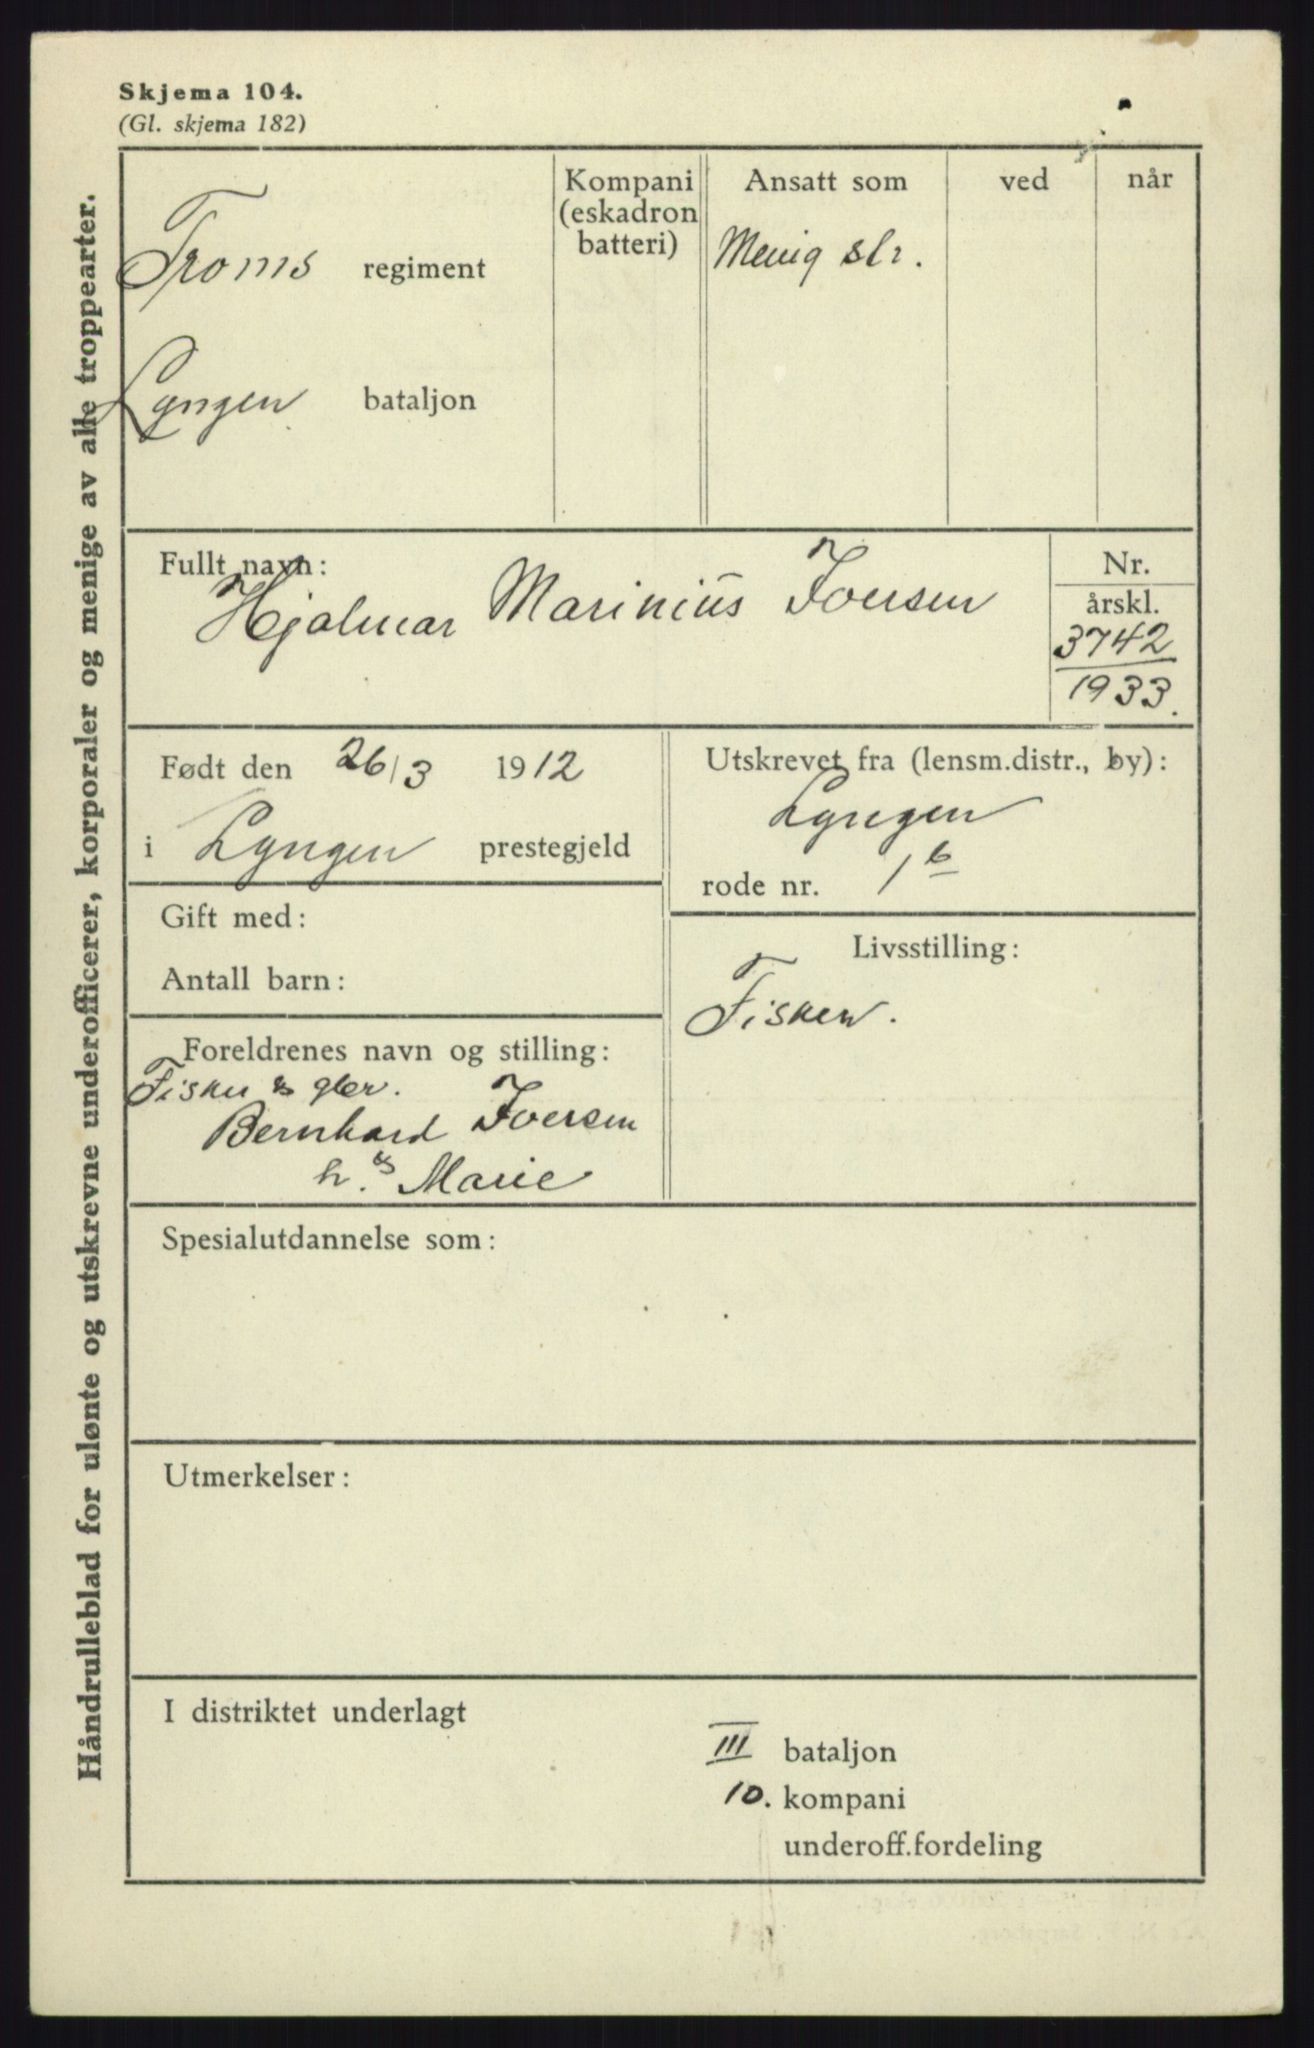 Skjema 104.
(Gl. skjema 182)
Håndrulleblad for ulønte og utskrevne underofficerer, korporaler og menige av alle troppearter.
Troms regiment
Lyngen bataljon
Kompani
(eskadron
batteri)
Ansatt som
Menig slr.
ved
når
Fullt navn:
Hjalmar Marinius Iversen
Nr.
årskl.
3742
1933.
Født den 26/3 1912
i Lyngen prestegjeld
Utskrevet fra (lensm.distr., by):
Lyngen
rode nr. 1 b
Gift med:
Antall barn:
Livsstilling:
Fisker.
Foreldrenes navn og stilling:
Fisker & gbr.
Bernhard Iversen
h. & Marie
Spesialutdannelse som:
Utmerkelser:
I distriktet underlagt
III bataljon
10. kompani
underoff.fordeling